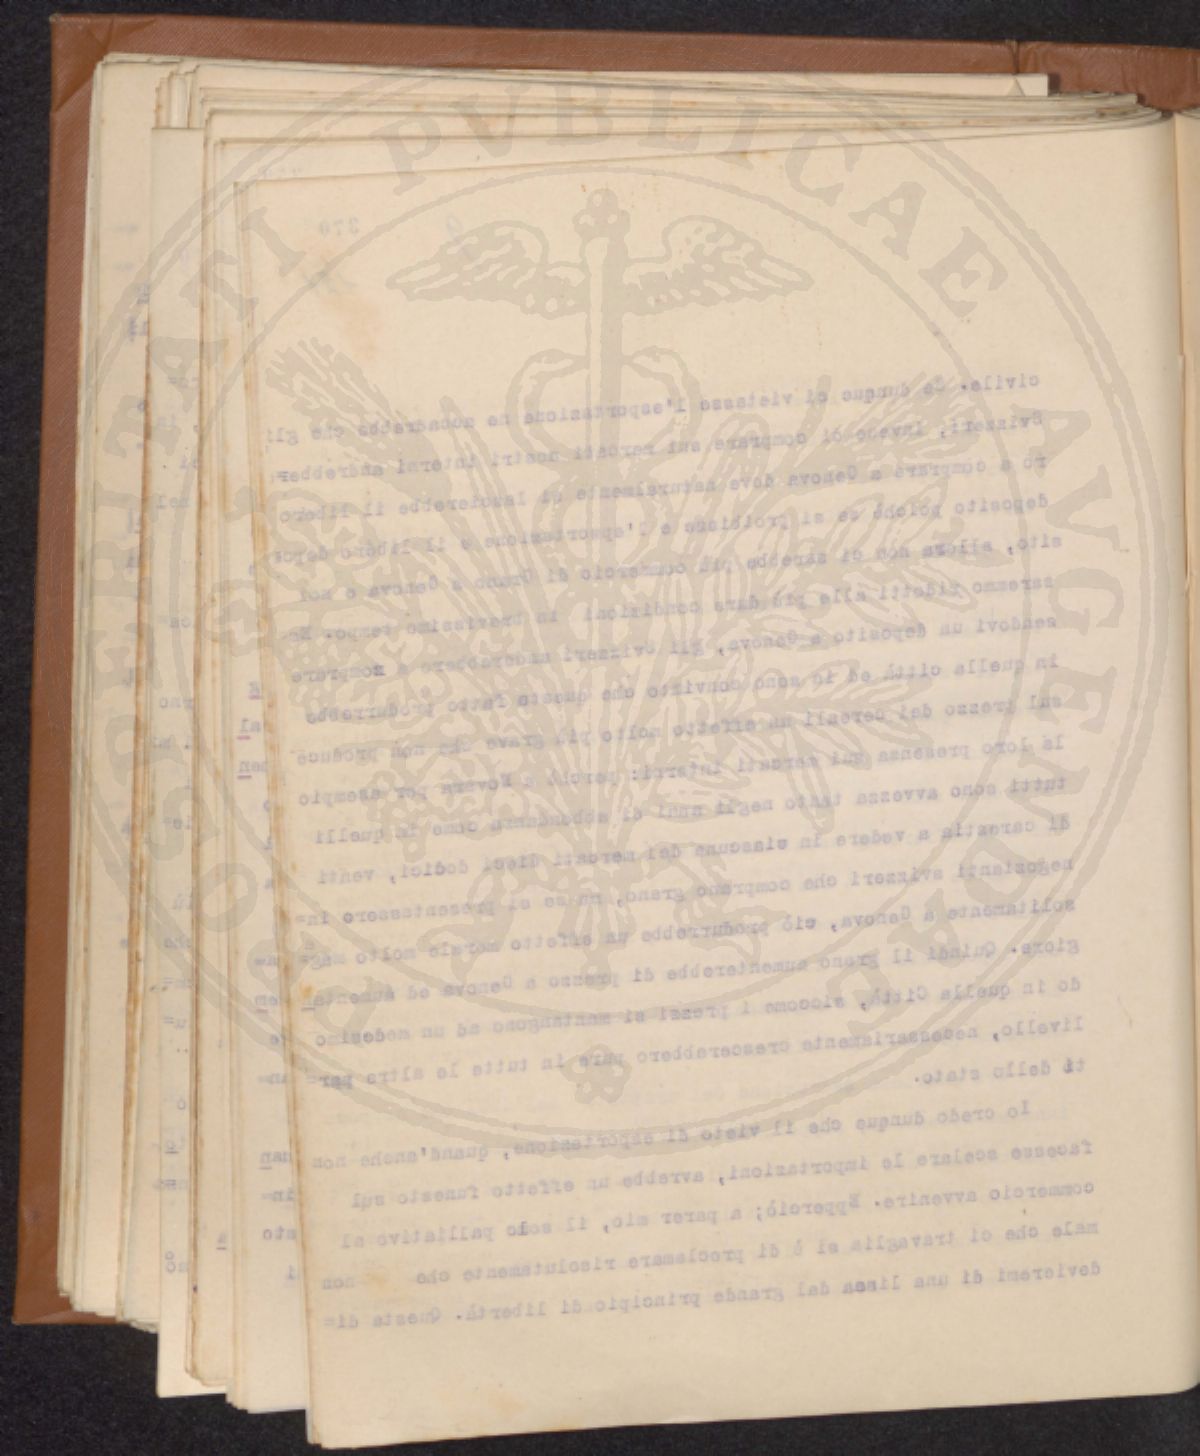 PROSPERITATI PVBLICAE AVGENDAE
370
civile. Se dunque ci vietasse l'esportazione ne accadrebbe che gli
Svizzeri, invece di comprare sui mercati nostri interni andrebbe=
ro a comprare a Genova dove naturalmente si lascierebbe il libero
deposito poichè se si proibisse e l'esportazione e il libero depo=
sito, allora non ci sarebbe più commercio di Grano a Genova e noi
saremmo ridotti alle più dure condizioni in brevissimo tempo. Es=
sendovi un deposito a Genova, gli Svizzeri andrebbero a comprare
in quella città ed io sono convinto che questo fatto produrrebbe
sul prezzo dei cereali un effetto molto più grave che non produce
la loro presenza sui mercati interni: perchè a Novara per esempio
tutti sono avvezza tanto negli anni di abbondanza come in quelli
di carestia a vedere in ciascuno dei mercati dieci dodici, venti
negozianti svizzeri che comprano grano, ma se si presentassero in=
solitamente a Genova, ciò produrrebbe un effetto morale molto mag=
giore. Quindi il grano aumenterebbe di prezzo a Genova ed aumentan
do in quella Città, siccome i prezzi si mantengono ad un medesimo
livello, necessariamente crescerebbero pure in tutte le altre par=
ti dello stato.
Io credo dunque che il vieto di esportazione, quand'anche non
facesse scelare le importazioni, avrebbe un effetto funesto sul
commercio avvenire. Epperciò; a parer mio, il solo palliativo al
male che ci travaglia si è di proclamare risolutamente che non
devieremi di una linea dal grande principio di libertà. Questa di=